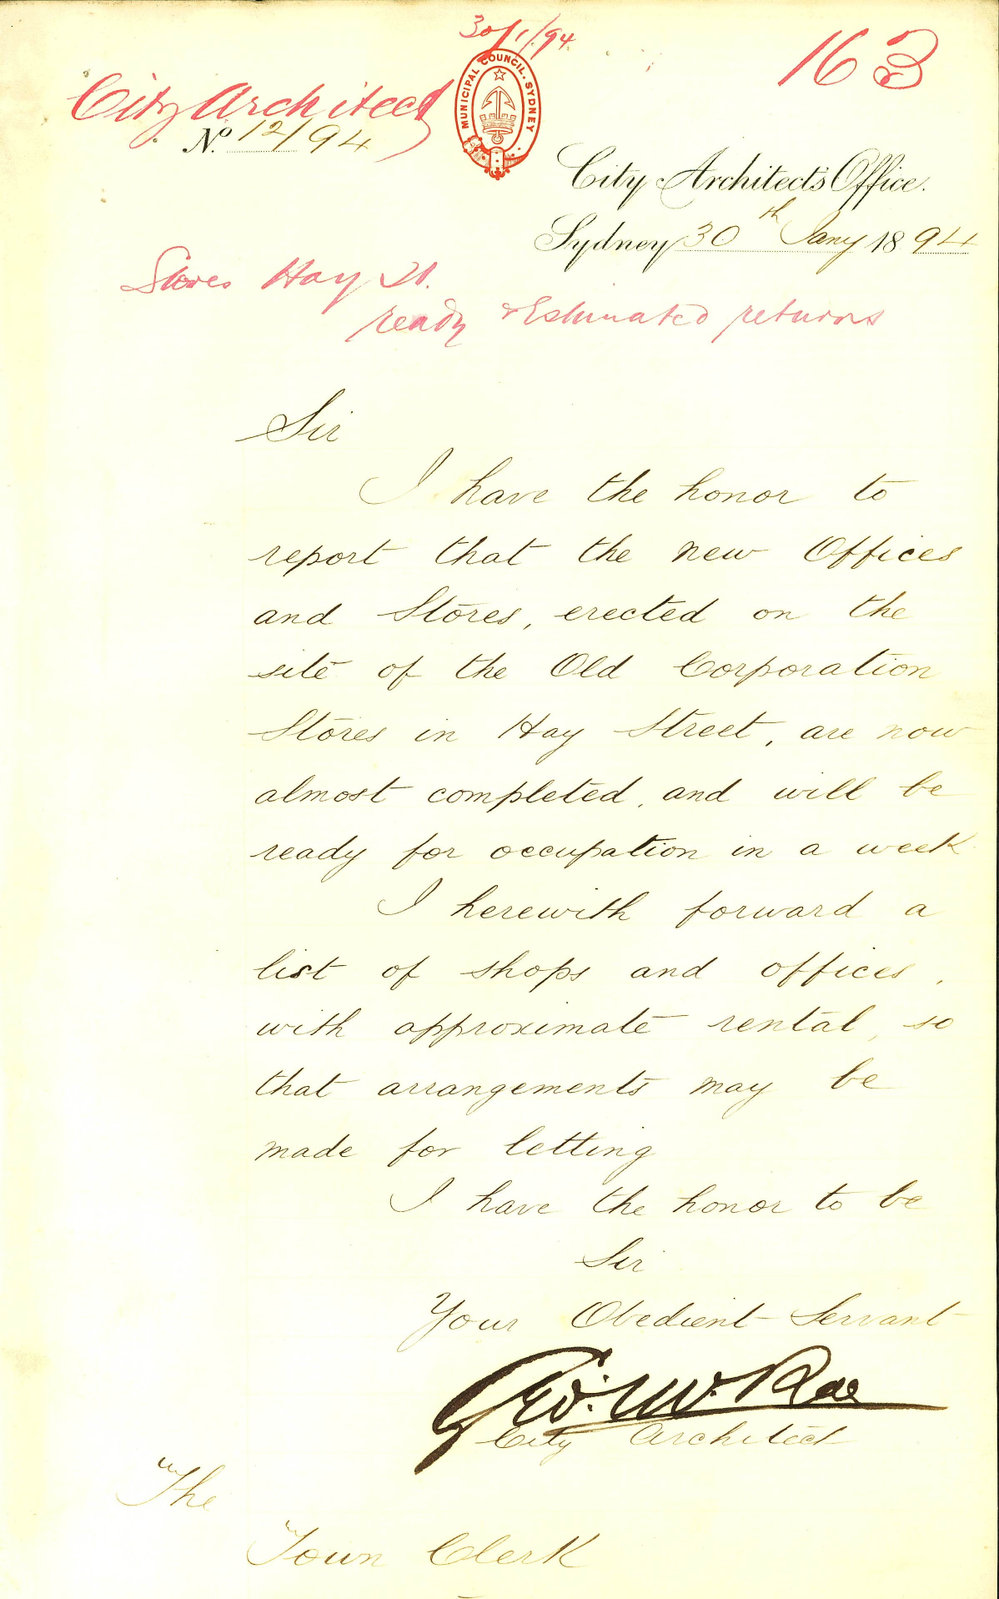 30/1/94
163
City Architect
MUNICIPAL COUNCIL. SYDNEY
No. 12/94
City Architect's Office.
Sydney 30th Jany 1894
Stores Hay St.
ready & Estimated returns
Sir
I have the honor to
report that the new Offices
and Stores, erected on the
site of the Old Corporation
Stores in Hay Street, are now
almost completed, and will be
ready for occupation in a week
I herewith forward a
list of shops and offices,
with approximate rental, so
that arrangements may be
made for letting
I have the honor to be
Sir
Your Obedient Servant
Geo. McRae
City Architect
The
Town Clerk